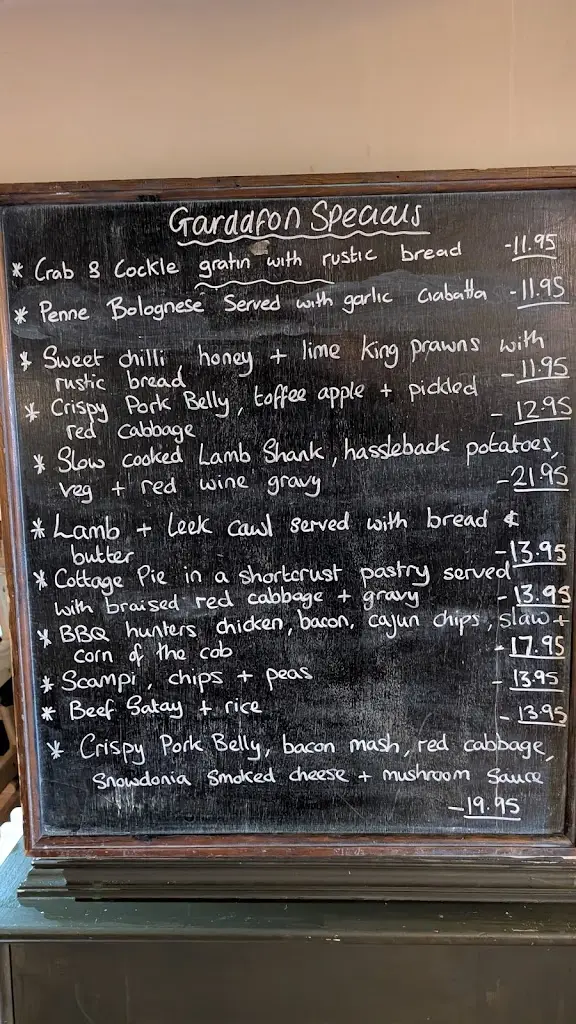 Garddfon Specials
* Crab & Cockle gratin with rustic bread -11.95
* Penne Bolognese Served with garlic Ciabatta -11.95
* Sweet chilli honey + lime King Prawns with
rustic bread -11.95
* Crispy Pork Belly, toffee apple + pickled
red cabbage - 12.95
* Slow cooked Lamb Shank, hassleback potatoes,
veg + red wine gravy -21.95
* Lamb + Leek cawl served with bread &
butter -13.95
* Cottage Pie in a shortcrust pastry served
with braised red cabbage + gravy - 13.95
* BBQ hunters chicken, bacon, cajun chips, slaw +
corn of the cob - 17.95
* Scampi, chips + peas - 13.95
* Beef Satay + rice - 13.95
* Crispy Pork Belly, bacon mash, red cabbage,
Snowdonia Smoked cheese + mushroom Sauce
-19.95